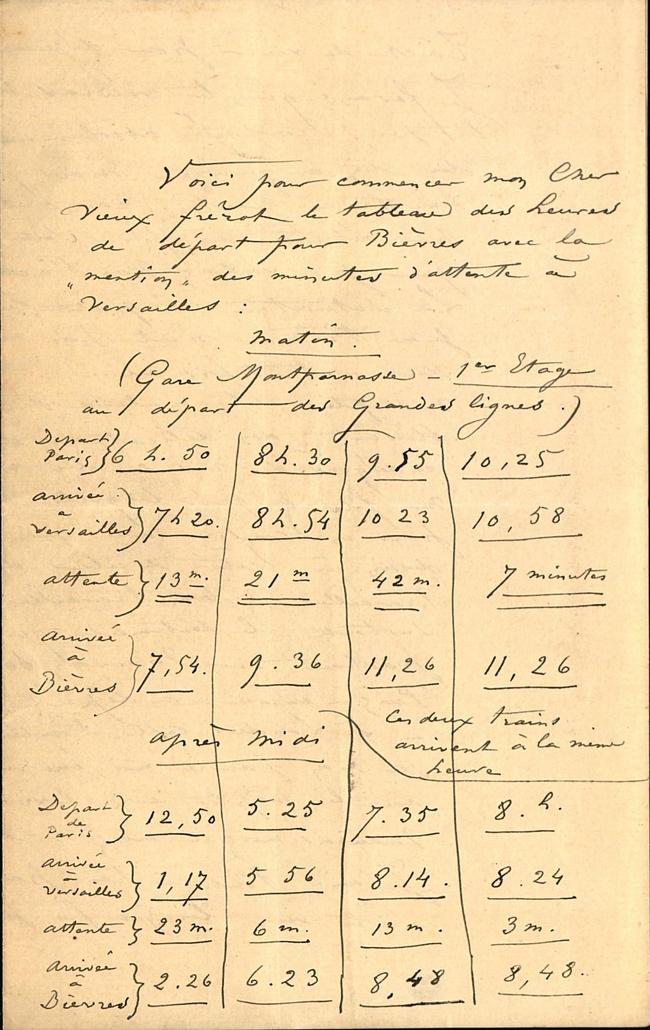 Voici pour commencer mon Cher
vieux frérot le tableau des heures
de départ pour Bièvres avec la
"mention" des minutes d'attente à
Versailles :
matin.
(Gare Montparnasse - 1er Etage
au départ des Grandes lignes.)
Départ Paris } 6 h. 50 8h. 30 9.55 10,25
arrivée à Versailles } 7h20. 8h.54 10 23 10,58
attente } 13 m. 21 m 42 m. 7 minutes
arrivée à Bièvres } 7,54. 9.36 11,26 11,26
Ces deux trains
arrivent à la même
heure
après midi
Départ de Paris } 12,50 5.25 7.35 8.h.
arrivée à Versailles } 1,17 5 56 8.14. 8.24
attente } 23 m. 6 m. 13 m. 3 m.
arrivée à Bièvres } 2.26 6.23 8,48 8,48.